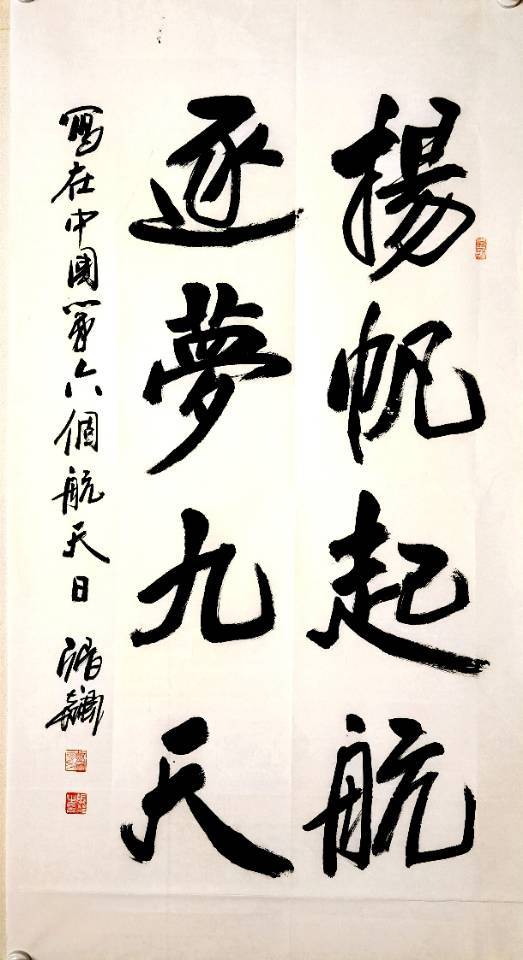 揚帆起航
逐夢九天
寫在中國第六個航天日